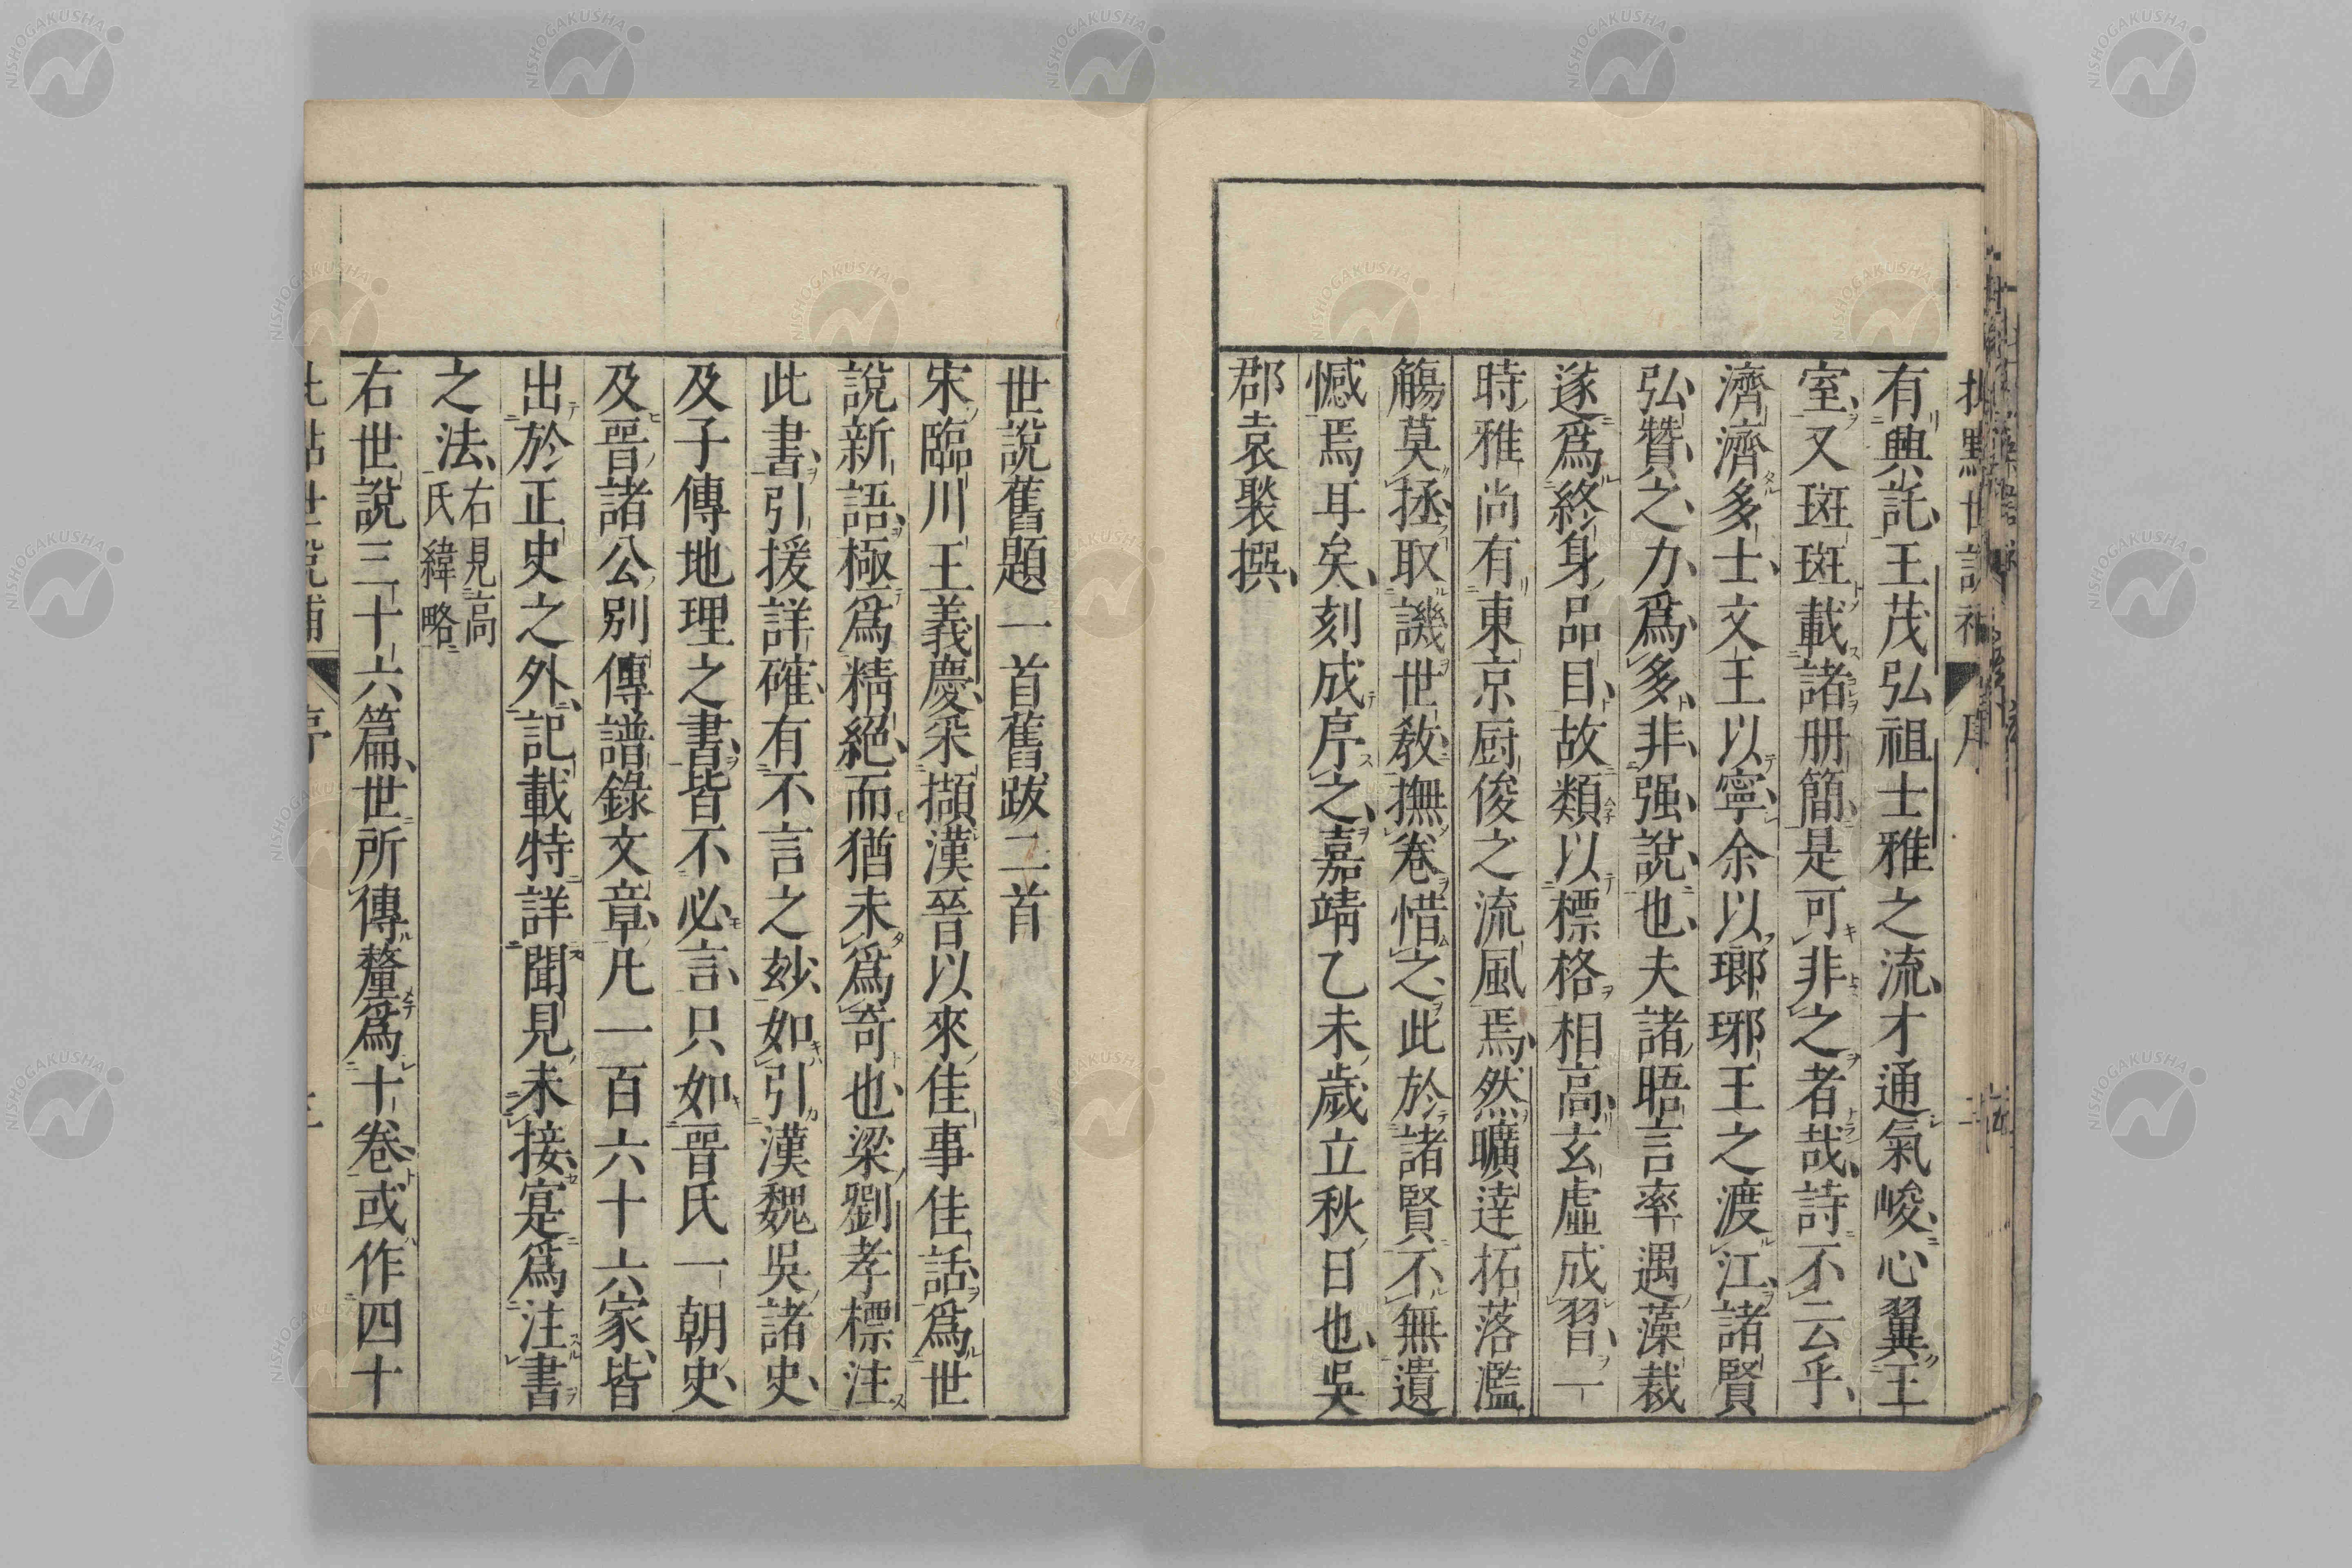 有興託王茂弘祖士雅之流才通氣峻心翼王
室又斑斑載諸册簡是可非之者哉詩不云乎
濟濟多士文王以寧余以瑯琊王之渡江諸賢
弘贊之力爲多非强說也夫諸晤言率遇藻裁
遂爲終身品目故類以標格相高玄虛成習一
時雅尚有東京厨俊之流風焉然曠達拓落濫
觴莫拯取譏世敎撫卷惜之此於諸賢不無遺
憾焉耳矣刻成序之嘉靖乙未歲立秋日也吳
郡袁褧撰
世說舊題一首舊跋二首
宋臨川王義慶采擷漢晉以來佳事佳話爲世
說新語極爲精絕而猶未爲奇也梁劉孝標注
此書引援詳確有不言之玅如引漢魏吳諸史
及子傳地理之書皆不必言只如晉氏一朝史
及晉諸公別傳譜錄文章凡一百六十六家皆
出於正史之外記載特詳聞見未接寔爲注書
之法右見高
氏緯略
右世說三十六篇世所傳釐爲十卷或作四十
NISHOGAKUSHA